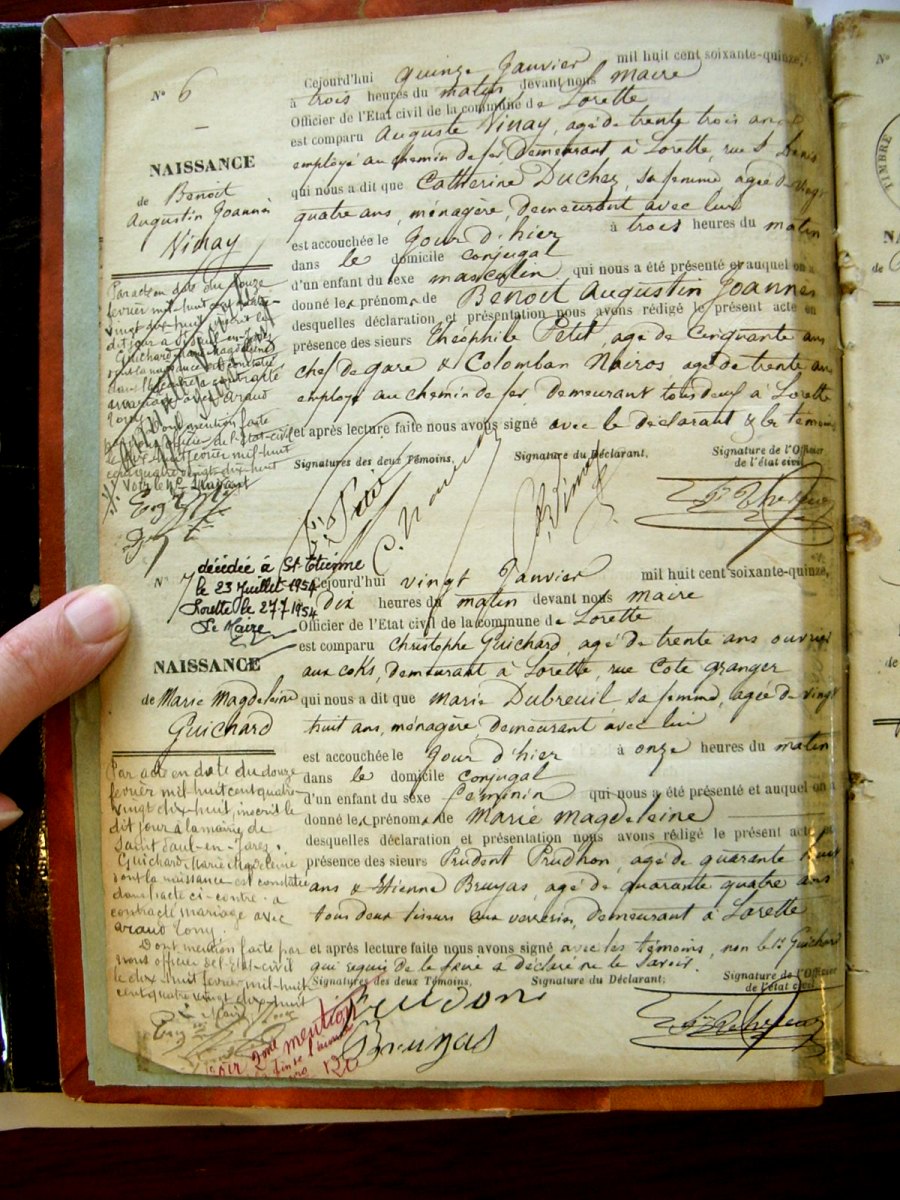 N° 6
NAISSANCE
de Benoit
Augustin Joannès
Vinay
Cejourd'hui quinze Janvier mil huit cent soixante-quinze,
à trois heures du matin devant nous maire
Officier de l'Etat civil de la commune de Lorette
est comparu Auguste Vinay, agé de trente trois ans
employé au chemin de fer demeurant à Lorette, rue St Denis
qui nous a dit que Catherine Duchez, sa femme agée de vingt
quatre ans, ménagère, demeurant avec lui
est accouchée le jour d'hier à trois heures du matin
dans le domicile conjugal
d'un enfant du sexe masculin qui nous a été présenté et auquel on a
donné les prénoms de Benoit Augustin Joannès
desquelles déclaration et présentation nous avons rédigé le présent acte en
présence des sieurs Théophile Petit, agé de Cinquante ans
chef de gare & Colomban Nairos agé de trente ans
employé au chemin de fer, demeurant tous deux à Lorette
et après lecture faite nous avons signé avec le déclarant & les témoins
Signatures des deux Témoins, Signature du Déclarant, Signature de l'Officier
de l'état civil
Par acte en date du douze
fevrier mil-huit cent quatre-
vingt dix-huit, inscrit le
dit jour à St Paul-en-Jarez
Guichard Marie Magdeleine
dont la naissance est constatée
dans l'acte ci-contre a contracté
mariage avec Araud
Tony
Dont mention faite
par nous officier de l'état-civil
le dix-huit fevrier mil-huit
cent quatre vingt dix-huit
Voir le N° suivant
N° 7
décédée à St Etienne
le 23 Juillet 1954
Lorette le 27 7 1954
Le Maire
NAISSANCE
de Marie Magdeleine
Guichard
Cejourd'hui vingt Janvier mil huit cent soixante-quinze,
à dix heures du matin devant nous maire
Officier de l'Etat civil de la commune de Lorette
est comparu Christophe Guichard, agé de trente ans ouvrier
aux coks, demeurant à Lorette, rue Cote granger
qui nous a dit que Marie Dubreuil sa femme, agée de vingt
huit ans, ménagère, demeurant avec lui
est accouchée le jour d'hier à onze heures du matin
dans le domicile conjugal
d'un enfant du sexe feminin qui nous a été présenté et auquel on a
donné les prénoms de Marie Magdeleine
desquelles déclaration et présentation nous avons rédigé le présent acte en
présence des sieurs Prudent Prudhon, agé de quarante huit
ans & Etienne Bruyas, agé de quarante quatre ans
tous deux tiseurs aux verreries, demeurant à Lorette
et après lecture faite nous avons signé avec les témoins, non le Sr Guichard
qui requis de le faire a déclaré ne le savoir.
Signatures des deux Témoins, Signature du Déclarant, Signature de l'Officier
de l'état civil
Prudon
Bruyas
Par acte en date du douze
fevrier mil-huit cent quatre-
vingt dix-huit, inscrit le
dit jour à la mairie de
Saint Paul-en-Jarez.
Guichard, Marie Magdeleine
dont la naissance est constatée
dans l'acte ci-contre a
contracté mariage avec
Araud Tony.
Dont mention faite par
nous officier de l'Etat-civil
le dix-huit fevrier mil-huit
cent quatre vingt dix-huit
Voir 2me mention
N°
TIMBRE